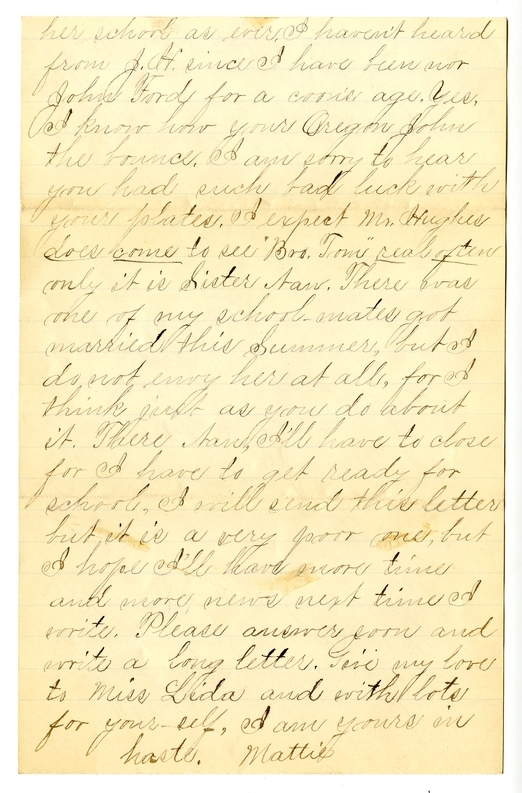 her school as ever. I haven't heard
from J. H. since I have been nor
John Ford for a coon's age. Yes,
I know how your Oregon John
the bounce. I am sorry to hear
you had such bad luck with
your plates. I expect Mr. Hughes
does come to see "Bro. Tom" real often
only it is Sister Nan. There was
one of my school-mates got
married this Summer, but I
do not envy her at all, for I
think just as you do about
it. There Nan, I'll have to close
for I have to get ready for
school, I will send this letter
but it is a very poor one, but
I hope I'll have more time
and more news next time I
write. Please answer soon and
write a long letter. Give my love
to Miss Lida and with lots
for your-self, I am yours in
haste. Mattie